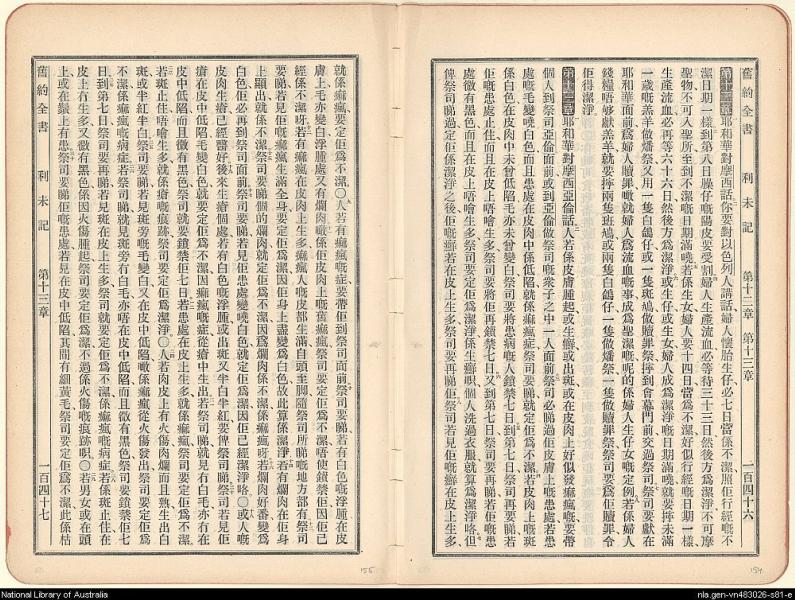 舊約全書 利未記 第十二章 第十三章 一百四十六
第十二章 耶和華對摩西話你要對以色列人講話婦人懷胎生仔必七日當係不潔照佢行經嘅不
潔日期一樣到第八日臊仔嘅陽皮要受割婦人生產流血必等待三十三日然後方為潔淨不可摩
聖物不可入聖所至到不潔嘅日期滿曉若係生女婦人要十四日當為不潔好似行經嘅日期一樣
生產流血必再等六十六日然後方為潔淨或生仔或生女婦人成為潔淨嘅日期滿曉就要捧未滿
一歲嘅羔羊做燔祭又用一隻白鴿仔或一隻斑鳩或做贖罪祭捧到會幕門前交過祭司祭司要獻在
耶和華面前為婦人贖罪噉就婦人為流血嘅事成為聖潔嘅呢的係婦人生仔女嘅定例若係婦人
錢糧唔够獻羔羊就要捧兩隻斑鳩或兩隻白鴿仔一隻做燔祭一隻做贖罪祭祭司要為佢贖罪令
佢得潔淨
第十三章 耶和華對摩西亞倫話人若係皮膚腫起或生癬或出斑或在皮肉上好似發癲瘋嘅要帶
個人到祭司亞倫面前或到亞倫做祭司嘅衆子之中一人面前祭司必睇過佢皮膚上嘅患處若患
處嘅毛變曉白色而且患處在皮肉中係低陷就係癲瘋症祭司要睇就定佢為不潔若皮肉上嘅斑
係白色在皮肉中未曾低陷毛亦未曾變白祭司就要將患病嘅人鎖禁七日到第七日祭司再要睇若
佢嘅患處止住而且在皮上唔噲生多祭司要將佢再鎖禁七日又到第七日祭司要再睇若佢嘅患
處微有黑色而且在皮上唔噲生多祭司要定佢為潔淨係生癬呮個人洗過衣服就算為潔淨咯但
俾祭司睇過定佢係潔淨之後佢嘅癬若在皮上生多要再睇佢祭司若見佢嘅癬在皮上生多
舊約全書 利未記 第十三章 一百四十七
就係癲瘋要定佢為不潔〇人若有癲瘋嘅症要帶佢到祭司面前祭司要睇若有白色嘅浮腫在皮
膚上毛亦變白浮腫處又有爛肉噉係佢皮肉上嘅舊癲瘋祭司要定佢為不潔唔使鎖禁佢因佢已
經係不潔呀若有癲瘋在皮肉上生多癲瘋人嘅皮都生滿自頭至脚隨祭司所睇嘅地方都有祭司
要睇若見佢嘅癲瘋生滿全身要定佢為潔淨因佢身上盡變為白色故此算係潔淨若有爛肉在佢身
上顯出就係不潔祭司要睇個的爛肉就定佢為不潔因為爛肉係不潔係癲瘋呀若爛肉好番變為
白色佢必再到祭司面前祭司要睇若見佢患處變曉白色就定佢為潔因佢已經潔淨咯〇若有人
皮肉曾生瘡已經醫好後來生瘡個處若有白色嘅浮腫或出斑又半白半紅要俾祭司睇祭司若見佢
瘡在皮中低陷毛變白色就要定佢為不潔因癲瘋嘅症從瘡中生出若祭司睇就見有白毛亦冇在
皮中低陷而且微有黑色祭司就要鎖禁佢七日若患處在皮上生多就係癲瘋祭司要定佢為不潔
若斑止住唔噲生多就係瘡嘅痕跡祭司要定佢為潔淨〇人若肉皮上有火傷肉爛而且熟生出白
斑或半紅半白祭司要睇若見斑旁嘅毛變白又在皮中低陷噉係癲瘋從火傷發出祭司要定佢為
不潔係癲瘋嘅病症若祭司睇就見斑旁冇白毛亦唔在皮中低陷而且微有黑色祭司要鎖禁佢七
日到第七日祭司要再睇若見斑在皮上生多祭司就要定佢為不潔係癲瘋嘅病症若係斑止住在
皮上冇生多又微有黑色係因火傷腫起祭司要定佢為潔不過係火傷嘅痕跡呮〇若男女或在頭
上或在鬚上有患祭司要睇佢嘅患處若見在皮中低陷其間有細黃毛祭司要定佢為不潔此係枯
156
154
National Library of Australia
nla.gen-vn483026-s81-e